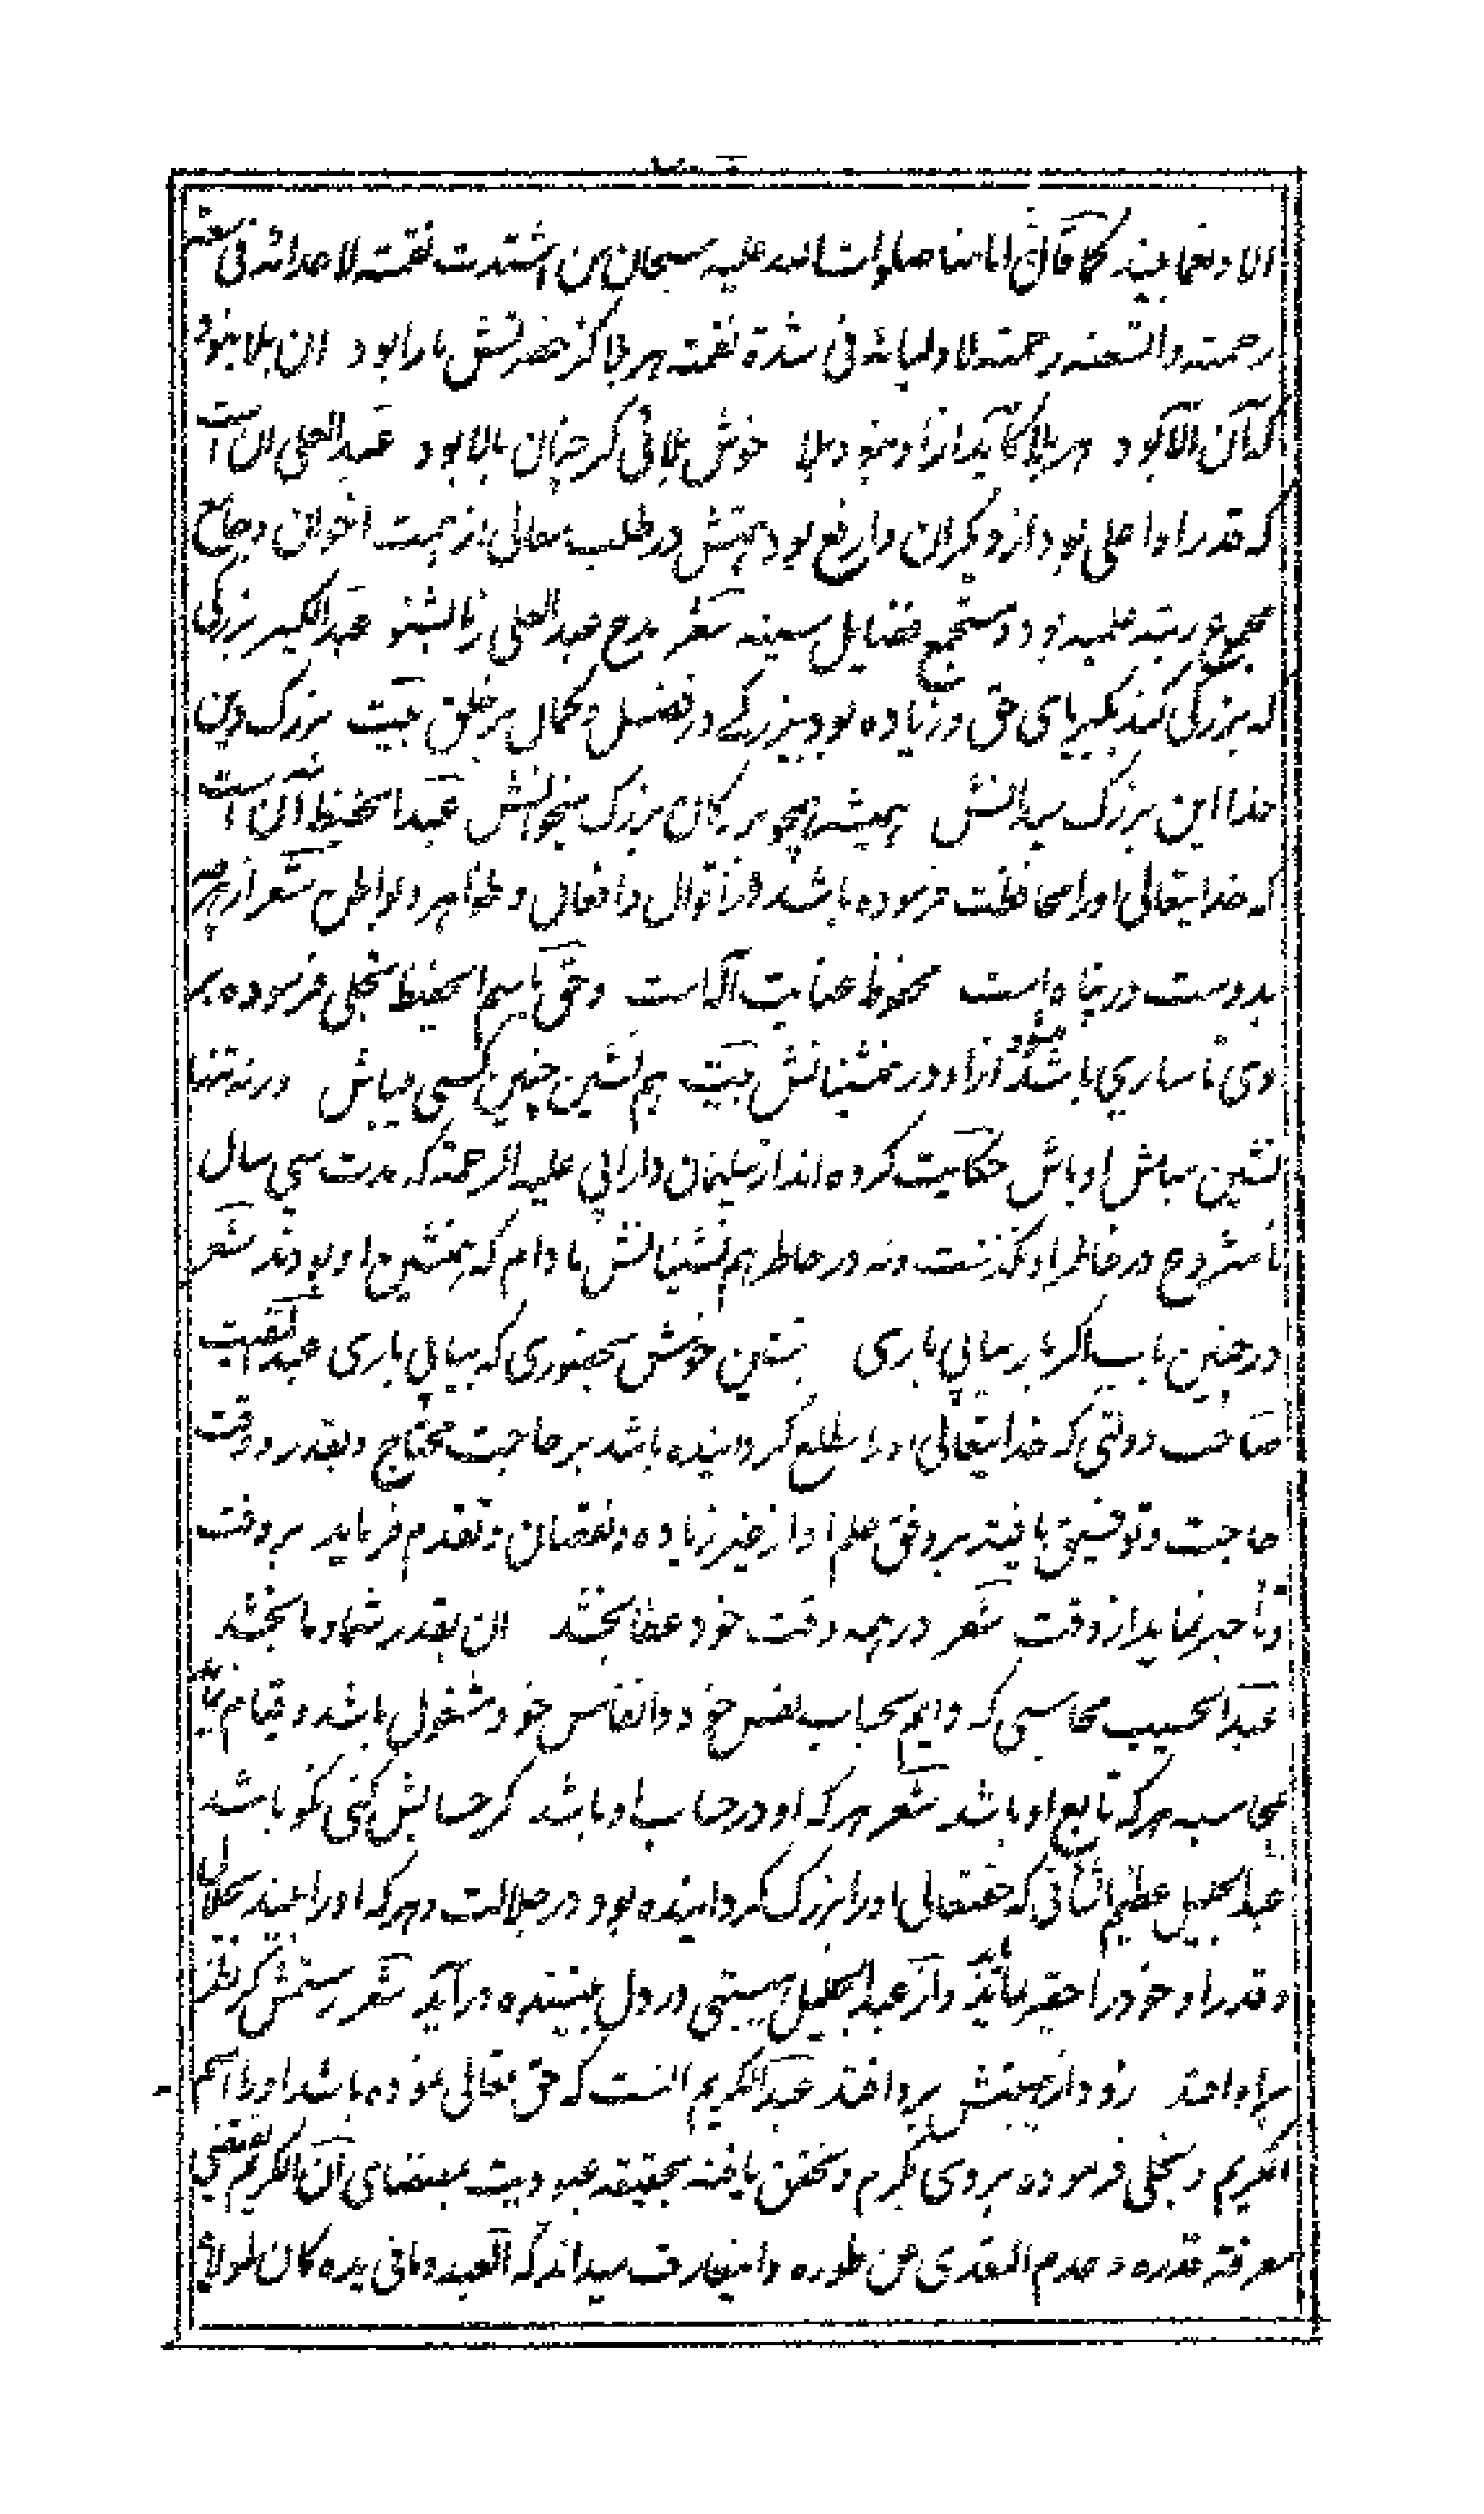 الا و نعما بیند کما قال امامنا صلوات الله علیه سبحان من اشتدت نقمته لاعدائه فی سعة
رحمته و اتسعت رحمته لاولیائه فی شدة نقمته هر بلا کز حضرتش ما را بود ان بلا نبود
که آن آلا بود هر بلا کاید از او نبود بلا خوش بلائی کر چنان بالا بود عبد العلی ان است
که قدر او اعلی بود از دیگران و ارفع بود همتش در طلب معالی از همت اخوان و جامع
مجموع رتبه علمیه بود و مستجمع فضایل سنیه شعر مدح عبد العلی زما بشنو عبد الکبیر بزرگی
که بزرگی کند بکبریای حق و زیاده بود بزرگی در فضل و کمال بر خلق بیت بزرگ دین
خدا این بزرگ میدانش همیشه همچو بزرگان بزرگ میخوانش عبد الحفیظ آن است
که خدایتعالی او را محافظت فرموده باشد در اقوال و افعال و ظواهر و بواطن شعر از همه
بدوست در پناه است محفوظ عنایت آله است و حق باسم الحفیظ تجلی فرموده بر
وی تا ساری باشد از او در همنشینانش بیت هم نشین چنین کسی میباش ورنه تنها
نشین مباش اوباش حکایت کرده‌اند از سلیمان دارابی علیه الرحمة که مدت سی سال
نا مشروع در خاطر او نگذشت و نه در خاطر هم نشینانش مادام که همنشین او بودند شعر
در چنین باب اگر تا بر بیابی باری بنشین خوش بحضوری که بیابی باری عبد المقیت
صاحب دولتی که خدایتعالی او را مطلع گردانیده باشد بر حاجت محتاج و بقدر و وقت
حاجت و توفیق یافته بر وفق علم او از غیر زیاده و نقصان و تقدم فرماید بر وقت
و تأخیر نماید از وقت شعر در همه وقت خود عطا بخشد ان بقدر شما و ما بخشد
عبد الحسیب محاسبی که دایم بحساب نفس خود و انفاس خود مشغول باشد و قیام نماید
محاسبه هر که تابع او باشد شعر هر که او در حساب او باشد کر حسابش کنی نکو باشد
عبد الجلیل عظیم الشانی که حقتعالی او را بزرگ گردانیده بود در جلالت و هر که او را بیند بجلال
و قدر او خود را حقیر یابد و از عبد الجلیل هیبتی در دل بیننده درآید شعر رستمش کر نظر
براو افتد زود از هیبتش بر وافتد عبد الکریم آنست که حق تعالی نموده باشد او را اسم
الکریم و تجلی فرموده بر وی بکرم و تحقق یافته بحقیقه عبودیت بمقتضای آن الکرم یقتضی
معرفة قدره و عدم التعدی عن طوره و این عارف میداند که العبد و ما فی یده کان لمولاه